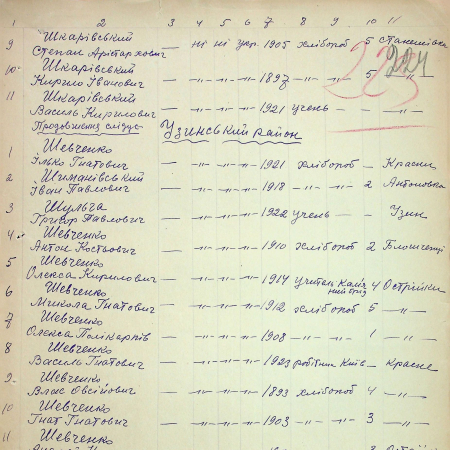 1 2 3 4 5 6 7 8 9 10 11
9 Шкарівський
Степан Арістархович — ні ні укр. 1905 хлібороб 5
10 Шкарівський
Кирило Іванович — -"- -"- -"- 1897 -"- -"- 5 -"-
11 Шкарівський
Василь Кирилович — -"- -"- -"- 1921 учень — — -"-
Продовження слідує
Узинський район
1 Шевченко
Ілько Гнатович — -"- -"- -"- 1921 хлібороб — Красне
2 Шиманівський
Іван Павлович — -"- -"- -"- 1918 -"- -"- 2 Антонівка
3 Шульга
Григор Павлович — -"- -"- -"- 1922 учень — — Узин
4 Шевченко
Антон Костьович — -"- -"- -"- 1910 хлібороб 2
5 Шевченко
Олекса Кирилович — -"- -"- -"- 1914 учитель 4 Острійки
6 Шевченко
Микола Гнатович — -"- -"- -"- 1912 хлібороб 5 -"-
7 Шевченко
Олекса Полікарпів — -"- -"- -"- 1908 -"- -"- 1 -"-
8 Шевченко
Василь Гнатович — -"- -"- -"- 1923 робітник Київ — Красне
9 Шевченко
Влас Овсійович — -"- -"- -"- 1893 хлібороб 4 -"-
10 Шевченко
Гнат Гнатович — -"- -"- -"- 1903 -"- -"- 3 -"-
11 Шевченко